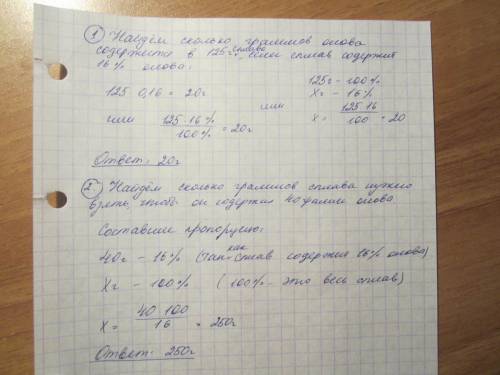 ① Найдём сколько граммов олова
содержится в 125г сплава, если сплав содержит
16% олова:
125 0,16 = 20г
или 125·16% / 100% = 20г
или
125г - 100%
Xг - 16%
X = 125·16 / 100 = 20
Ответ: 20г
② Найдём сколько граммов сплава нужно
взять, чтобы он содержал 40 олова.
Составим пропорцию:
40г - 16% (так как сплав содержит 16% олова)
Xг - 100% (100% - это весь сплав)
X = 40 100 / 16 = 250г
Ответ: 250г